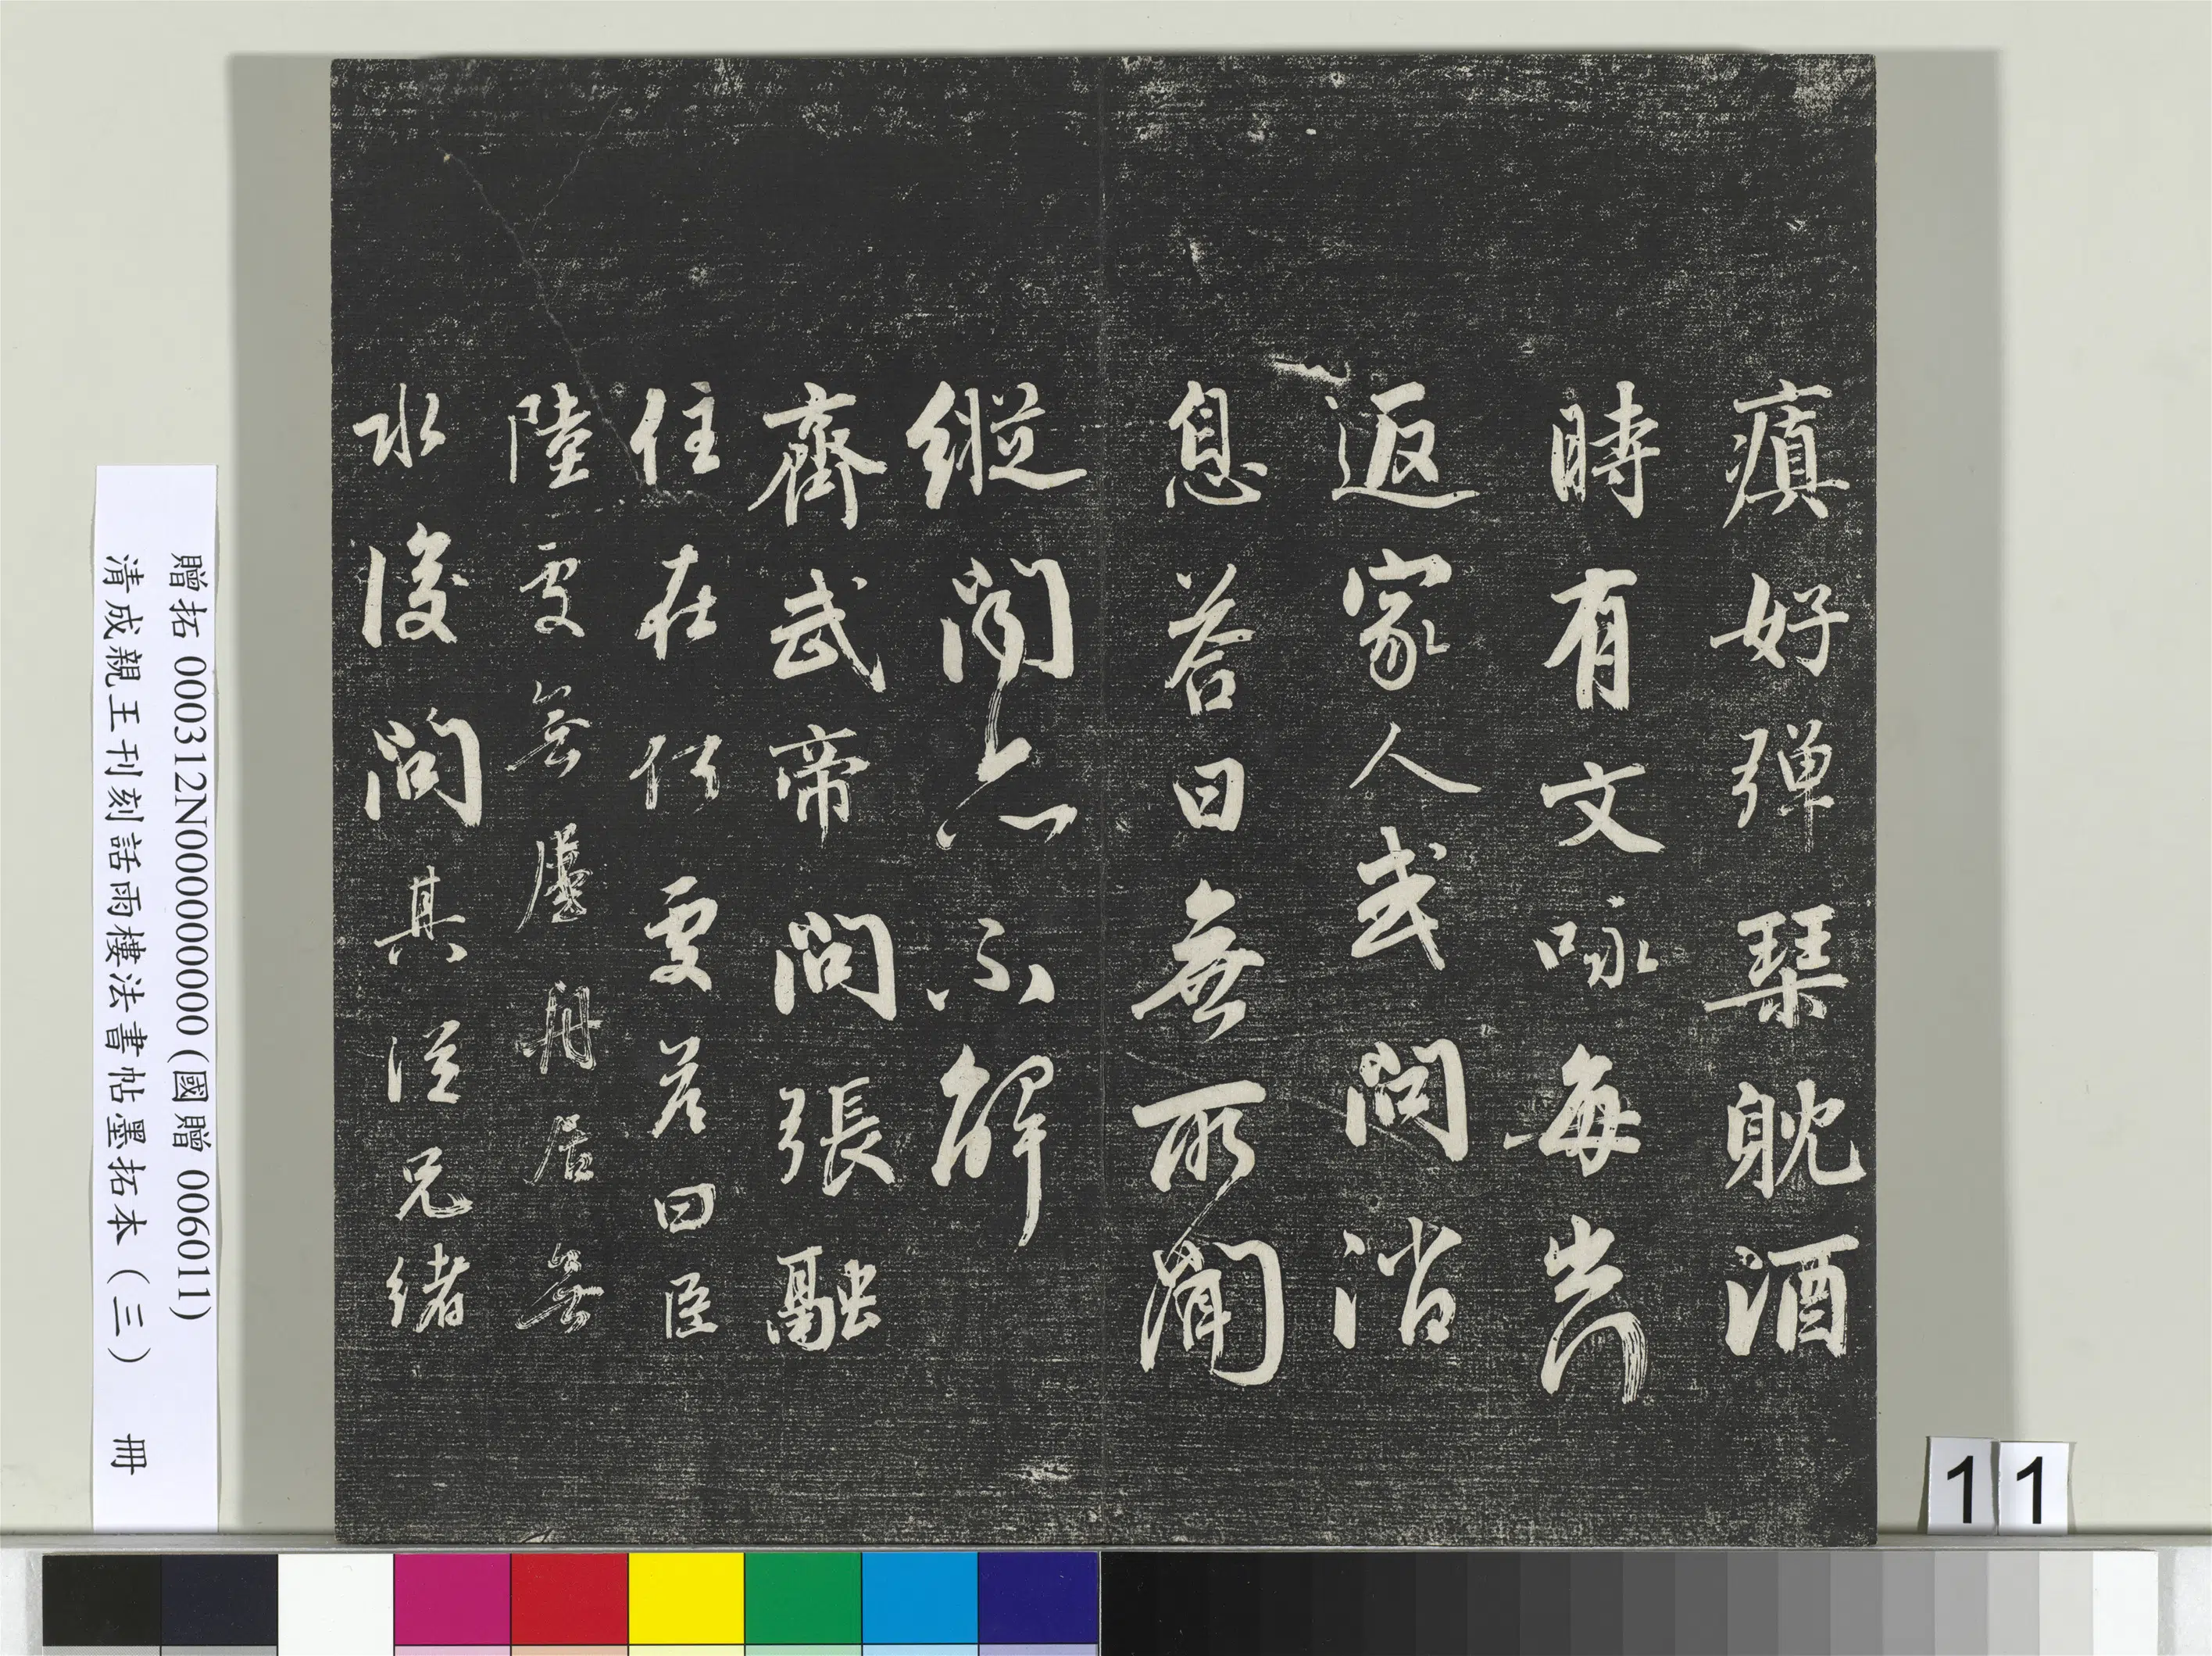 瘨好弹琹躭酒
時有文咏每出
返家人或問消
息答曰無所聞
縱聞亦不解
齊武帝問張融
住在何處答曰臣
陸處無屋舟居無
水後問其從兄緒
贈拓 000312N000000000 (國贈 006011)
清成親王刊刻話雨樓法書帖墨拓本 (三) 冊
1 1